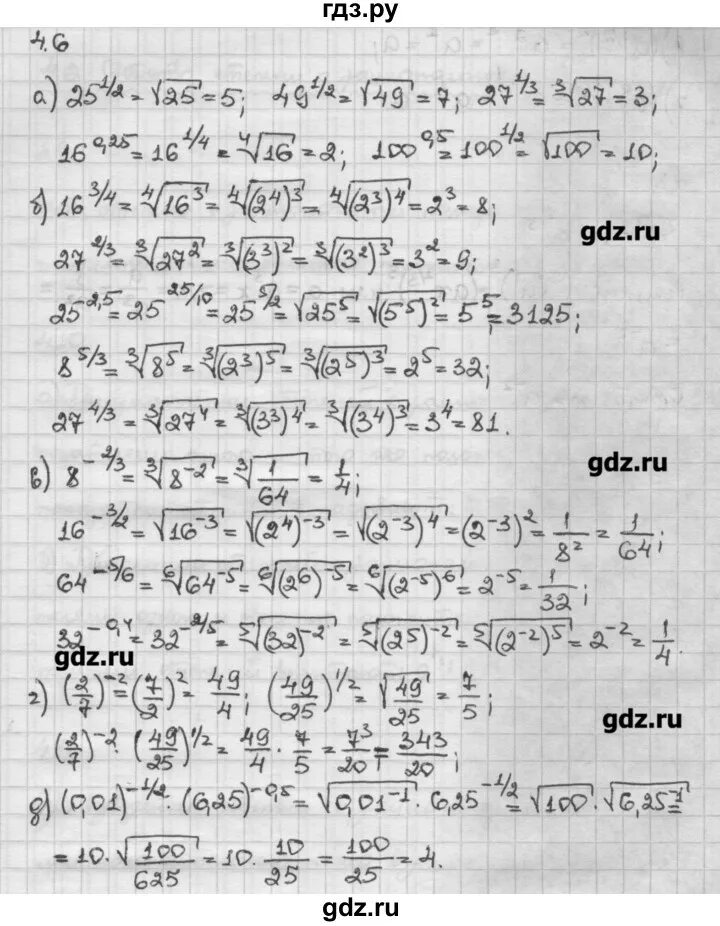 гдз.ру
4.6
а) 25^{1/2} = √25 = 5; 49^{1/2} = √49 = 7; 27^{1/3} = ∛27 = 3;
16^{0,25} = 16^{1/4} = ∜16 = 2; 100^{0,5} = 100^{1/2} = √100 = 10;
б) 16^{3/4} = ∜(16^3) = ∜((2^4)^3) = ∜((2^3)^4) = 2^3 = 8;
gdz.ru
27^{2/3} = ∛(27^2) = ∛((3^3)^2) = ∛((3^2)^3) = 3^2 = 9;
25^{2,5} = 25^{25/10} = 25^{5/2} = √(25^5) = √((5^5)^2) = 5^5 = 3125;
8^{5/3} = ∛(8^5) = ∛((2^3)^5) = ∛((2^5)^3) = 2^5 = 32;
27^{4/3} = ∛(27^4) = ∛((3^3)^4) = ∛((3^4)^3) = 3^4 = 81.
в) 8^{-2/3} = ∛(8^{-2}) = ∛(1/64) = 1/4;
gdz.ru
16^{-3/2} = √(16^{-3}) = √((2^4)^{-3}) = √((2^{-3})^4) = (2^{-3})^2 = 1/8^2 = 1/64;
64^{-5/6} = ⁶√(64^{-5}) = ⁶√((2^6)^{-5}) = ⁶√((2^{-5})^6) = 2^{-5} = 1/32;
32^{-0,4} = 32^{-2/5} = ⁵√((32)^{-2}) = ⁵√((2^5)^{-2}) = ⁵√((2^{-2})^5) = 2^{-2} = 1/4.
gdz.ru
г) (2/7)^{-2} = (7/2)^2 = 49/4; (49/25)^{1/2} = √(49/25) = 7/5;
gdz.ru
(2/7)^{-2} · (49/25)^{1/2} = 49/4 · 7/5 = 7^3/20 = 343/20;
д) (0,01)^{-1/2} · (6,25)^{-0,5} = √(0,01^{-1}) · 6,25^{-1/2} = √100 · √(6,25^{-1}) =
= 10 · √(100/625) = 10 · 10/25 = 100/25 = 4.
gdz.ru